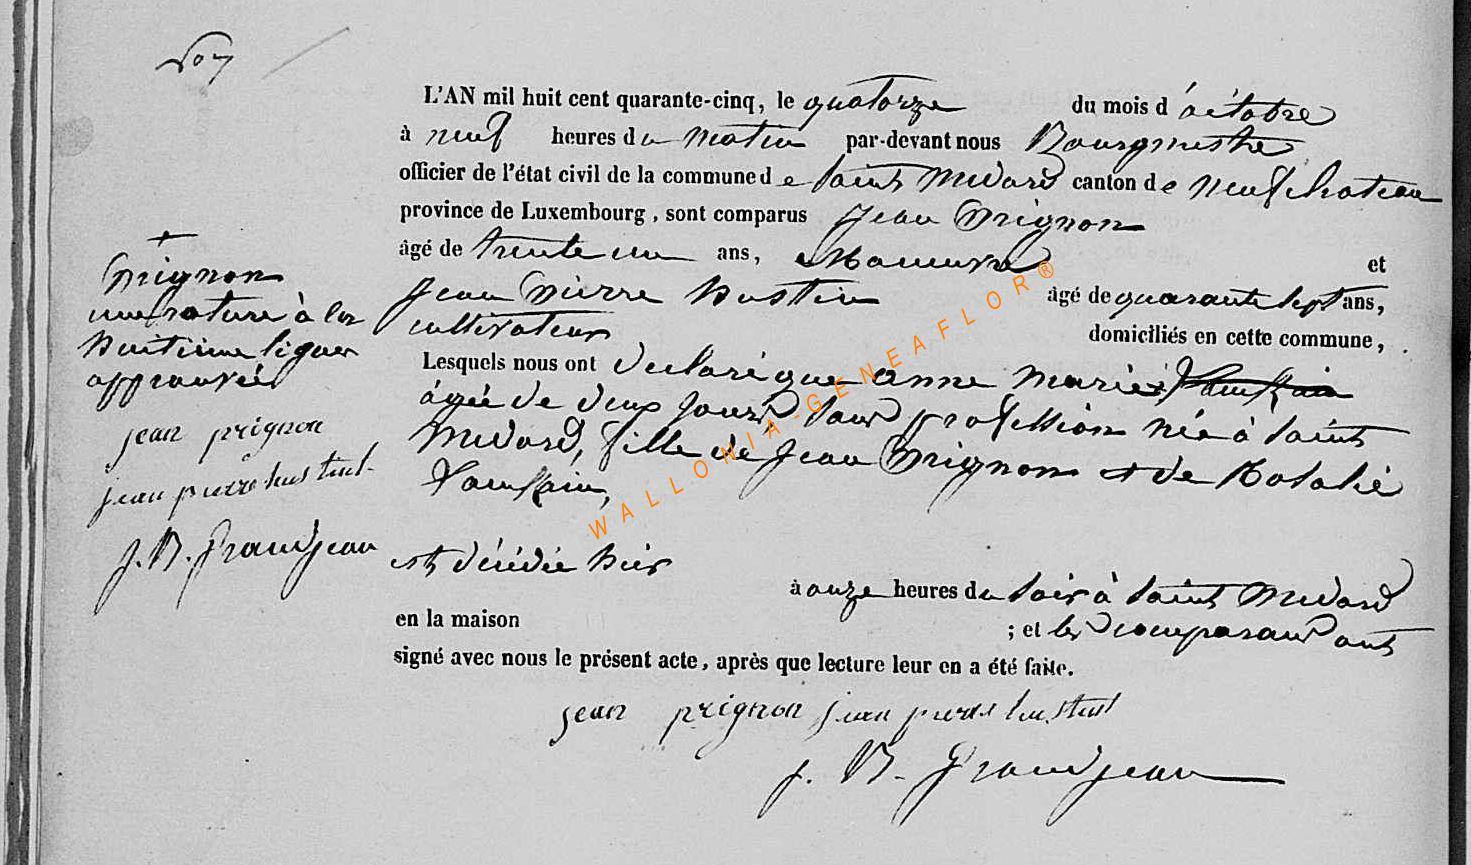 n° 7
L'AN mil huit cent quarante-cinq, le quatorze du mois d'octobre
à neuf heures du matin par-devant nous Bourgmestre
officier de l'état civil de la commune de Saint Médard canton de Neufchateau
province de Luxembourg, sont comparus Jean Prignon
âgé de trente un ans, Manœuvre et
Jean Pierre Hustin âgé de quarante sept ans,
cultivateur domiciliés en cette commune,
Lesquels nous ont déclaré que anne Marie
âgée de deux jours, sans profession née à Saint
Médard, fille de Jean Prignon et de Rosalie
est décédée hier
à onze heures du soir à Saint Médard
en la maison ; et les comparans ont
signé avec nous le présent acte, après que lecture leur en a été faite.
jean prignon jean pierre hustin
J. B. Grandjean
+
Prignon
une rature à la
huitième ligne
approuvée
jean prignon
jean pierre hustin
J. B. Grandjean
WALLONIA-GENEAFLOR®